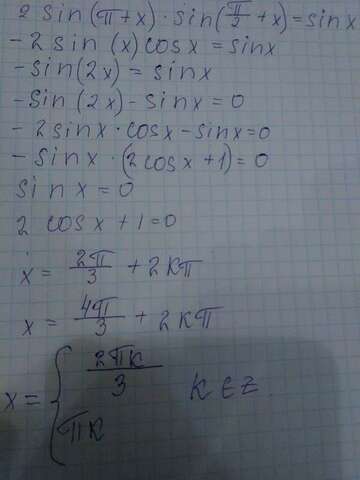 2 sin(π+x)·sin(π/2+x)=sinx
-2 sin (x) cosx = sinx
-sin(2x) = sinx
-sin (2x) - sinx = 0
-2sinx·cosx-sinx=0
-sinx·(2cosx+1)=0
sin x = 0
2 cosx+1=0
x = 2π/3 + 2kπ
x = 4π/3 + 2kπ
x = { 2πk/3 k∈z
πk